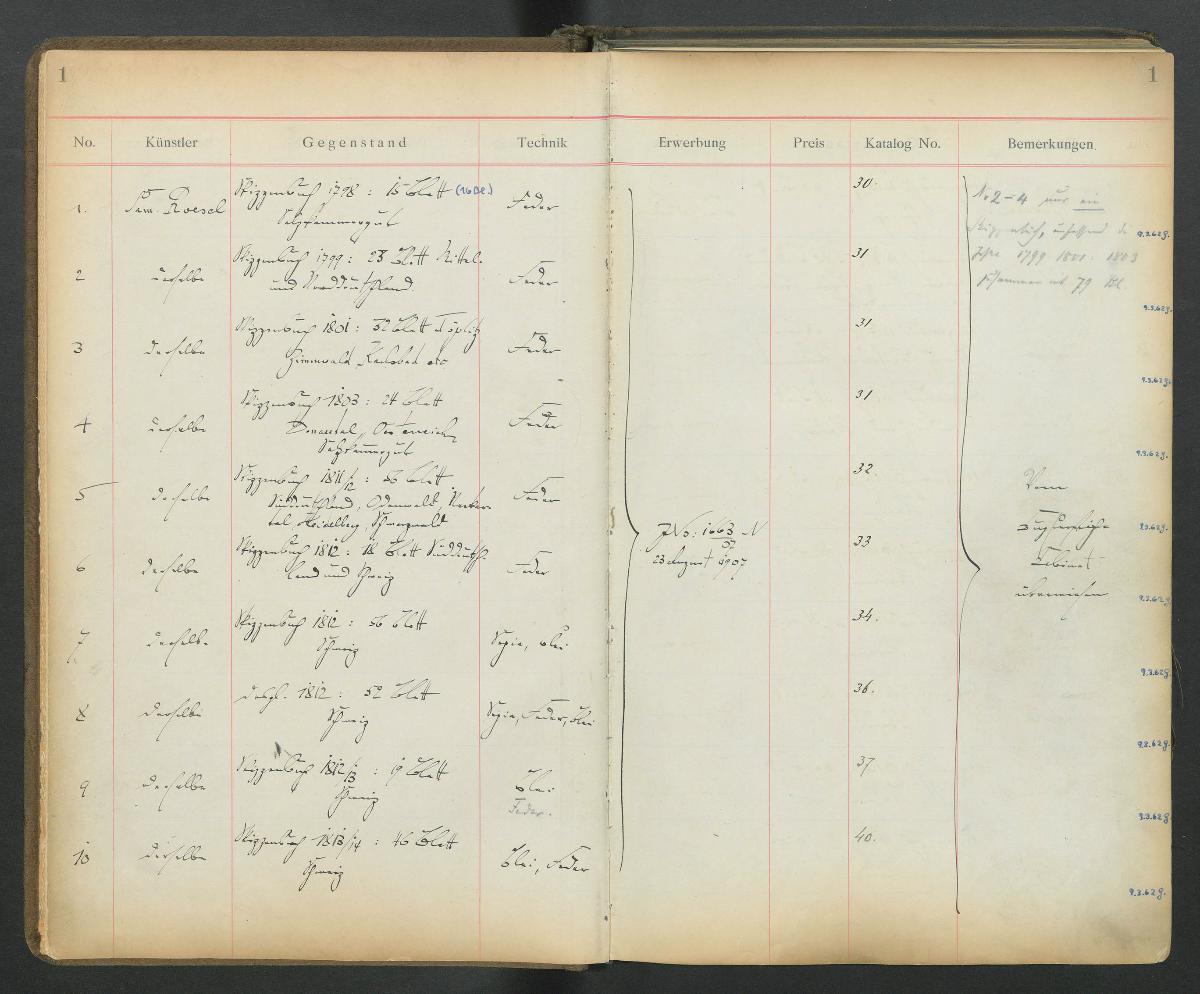 1
1
No. Künstler Gegenstand Technik Erwerbung Preis Katalog No. Bemerkungen
1. Sam. Roesel Skizzenbuch 1798 : 15 Blatt (16 Bl.) Feder 30.
Salzkammergut
2 derselbe Skizzenbuch 1799 : 23 Blatt Mittel- Feder 31
und Norddeutschland
3 derselbe Skizzenbuch 1801 : 32 Blatt Töplitz Feder 31
Zinnwald, Karlsbad etc
4 derselbe Skizzenbuch 1803 : 24 Blatt Feder 31
Donautal, Oesterreich,
Salzkammergut
5 derselbe Skizzenbuch 1811/12 : 56 Blatt Feder 32.
Süddeutschland, Odenwald, Neckar-
tal, Heidelberg, Schwarzwald
6 derselbe Skizzenbuch 1812 : 18 Blatt Süddeutsch- Feder 33.
land und Schweiz
7 derselbe Skizzenbuch 1812 : 56 Blatt Sepia, Blei 34.
Schweiz
8 derselbe desgl. 1812 : 52 Blatt Sepia, Feder, Blei 36.
Schweiz
9 derselbe Skizzenbuch 1812/13 : 19 Blatt Blei 37
Schweiz Feder.
10 derselbe Skizzenbuch 1813/14 : 46 Blatt Blei, Feder 40.
Schweiz
J No: 1663 N
07
23 August 1907
No 2-4 nur ein
Skizzenbuch, umfassend die
Jahre 1799 1801. 1803
zusammen mit 79 Bl.
Vom
Kupferstich-
Kabinet
überwiesen
9.3.62 g.
9.3.62 g.
9.3.62 g.
9.3.62 g.
9.3.62 g.
9.3.62 g.
9.3.62 g.
9.3.62 g.
9.3.62 g.
9.3.62 g.